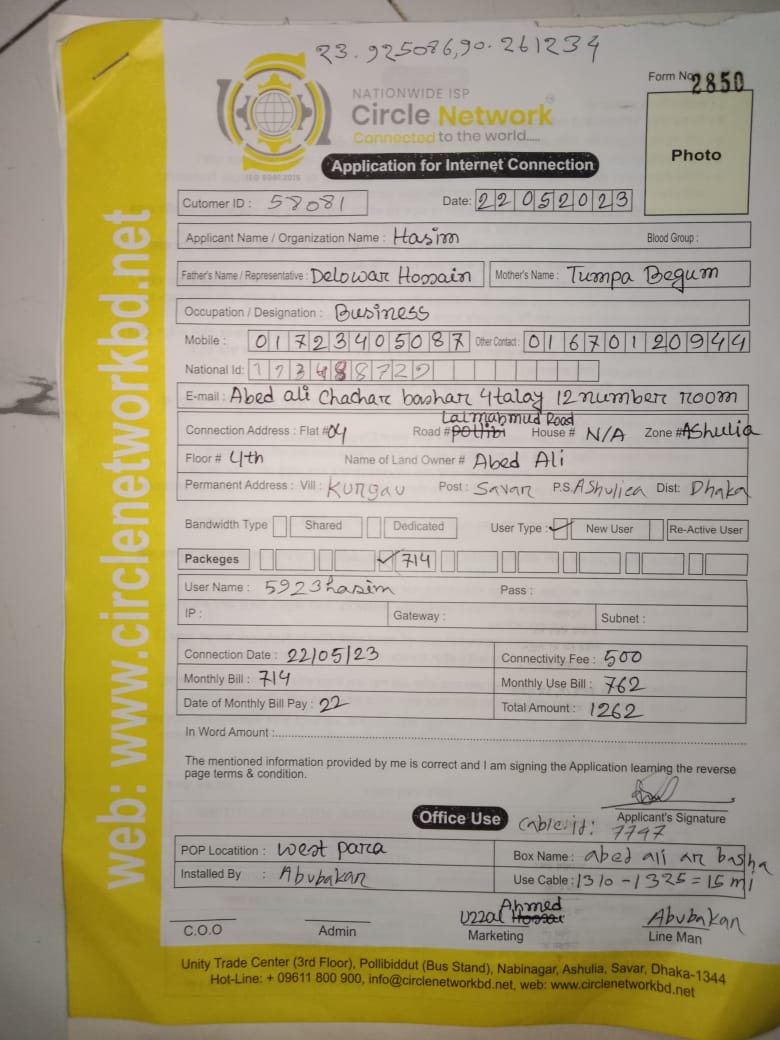 23.925086,90.261234
Form No. 2850
NATIONWIDE ISP
Circle Network
Connected to the world.....
ISO 9001:2015
Application for Internet Connection
Photo
Cutomer ID : 58081 Date: 22052023
Applicant Name / Organization Name : Hasim Blood Group :
Father's Name / Representative : Delowar Hossain Mother's Name : Tumpa Begum
Occupation / Designation : Business
Mobile : 01723405087 Other Contact : 01670120944
National Id:
E-mail : Abed ali Chachar bashar 4talay 12 number room
Connection Address : Flat # 04 Road # Lalmahmud Road House # N/A Zone # AShulia
Floor # 4th Name of Land Owner # Abed Ali
Permanent Address : Vill : Kurgau Post : Savar P.S. AShulia Dist: Dhaka
Bandwidth Type Shared Dedicated User Type : ✓ New User Re-Active User
Packeges ✓ 714
User Name : 5923hasim Pass :
IP : Gateway : Subnet :
Connection Date : 22/05/23 Connectivity Fee : 500
Monthly Bill : 714 Monthly Use Bill : 762
Date of Monthly Bill Pay : 22 Total Amount : 1262
In Word Amount :
The mentioned information provided by me is correct and I am signing the Application learning the reverse
page terms & condition.
Applicant's Signature
Office Use Cable id: 7747
POP Locatition : west para Box Name : abed ali ar basha
Installed By : Abubakan Use Cable : 1310-1325=15 mi
C.O.O Admin Uzzal Ahmed Marketing Abubakan Line Man
Unity Trade Center (3rd Floor), Pollibiddut (Bus Stand), Nabinagar, Ashulia, Savar, Dhaka-1344
Hot-Line: + 09611 800 900, info@circlenetworkbd.net, web: www.circlenetworkbd.net
web: www.circlenetworkbd.net